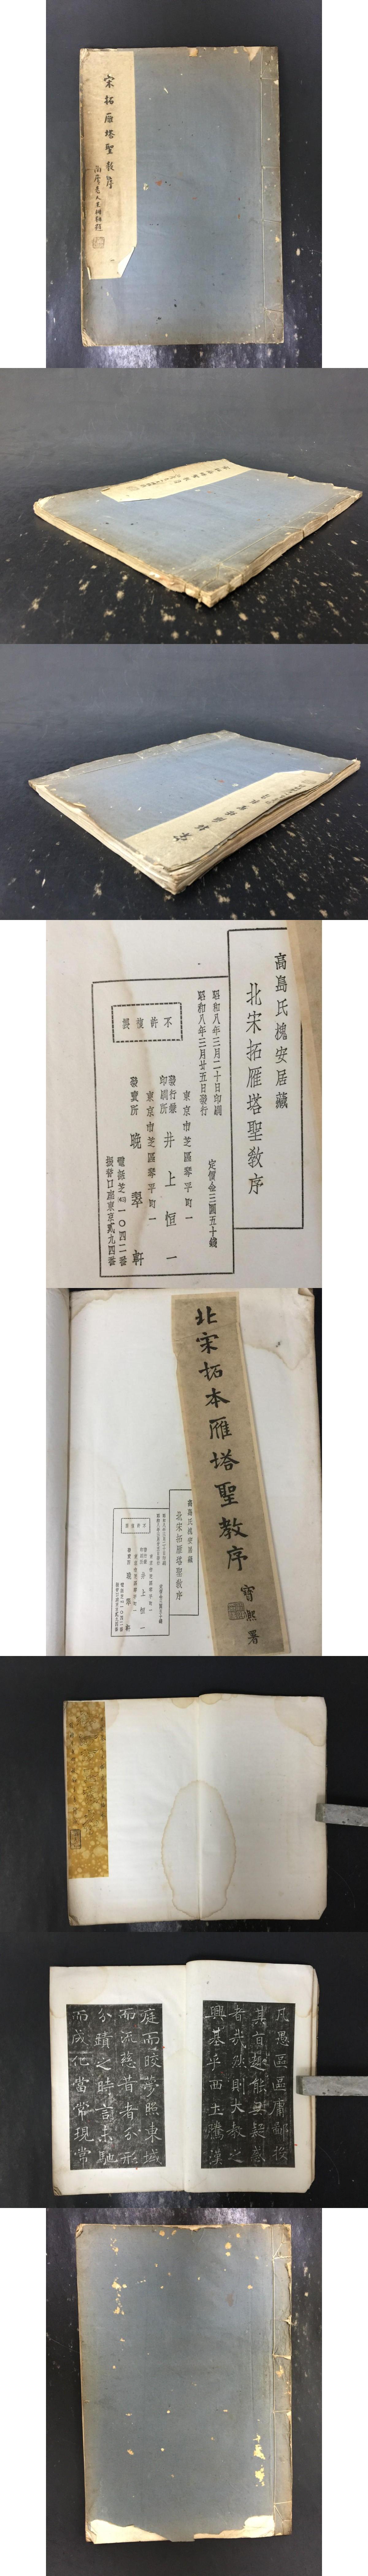 宋拓雁塔聖教序
高島氏槐安居藏
北宋拓雁塔聖教序
昭和八年三月二十日印刷
昭和八年三月廿五日發行
定價金三圓五十錢
不許複製
東京市芝區琴平町一
發行兼印刷所 井上恒一
東京市芝區琴平町一
發賣所 晩翠軒
電話芝(43)一〇四二番
振替口座東京貳九四番
北宋拓本雁塔聖教序
寶熙署
高島氏槐安居藏
北宋拓雁塔聖教序
不許複製
井上恒一
晩翠軒
凡愚區區庸鄙投
其旨趣能無疑惑
者哉然則大教之
興基乎西土騰漢
庭而皎夢照東域
而流慈昔者分形
分蹟之時言未馳
而成化當常現常